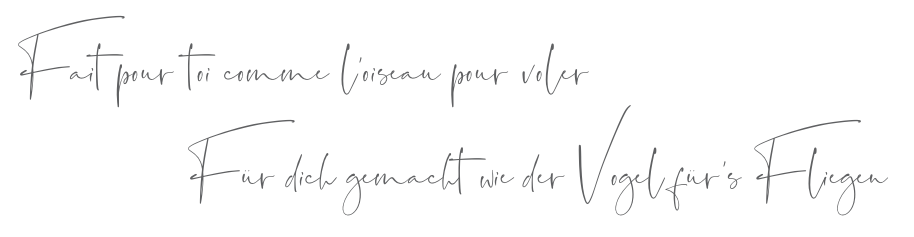 Fait pour toi comme l'oiseau pour voler
Für dich gemacht wie der Vogel für's Fliegen